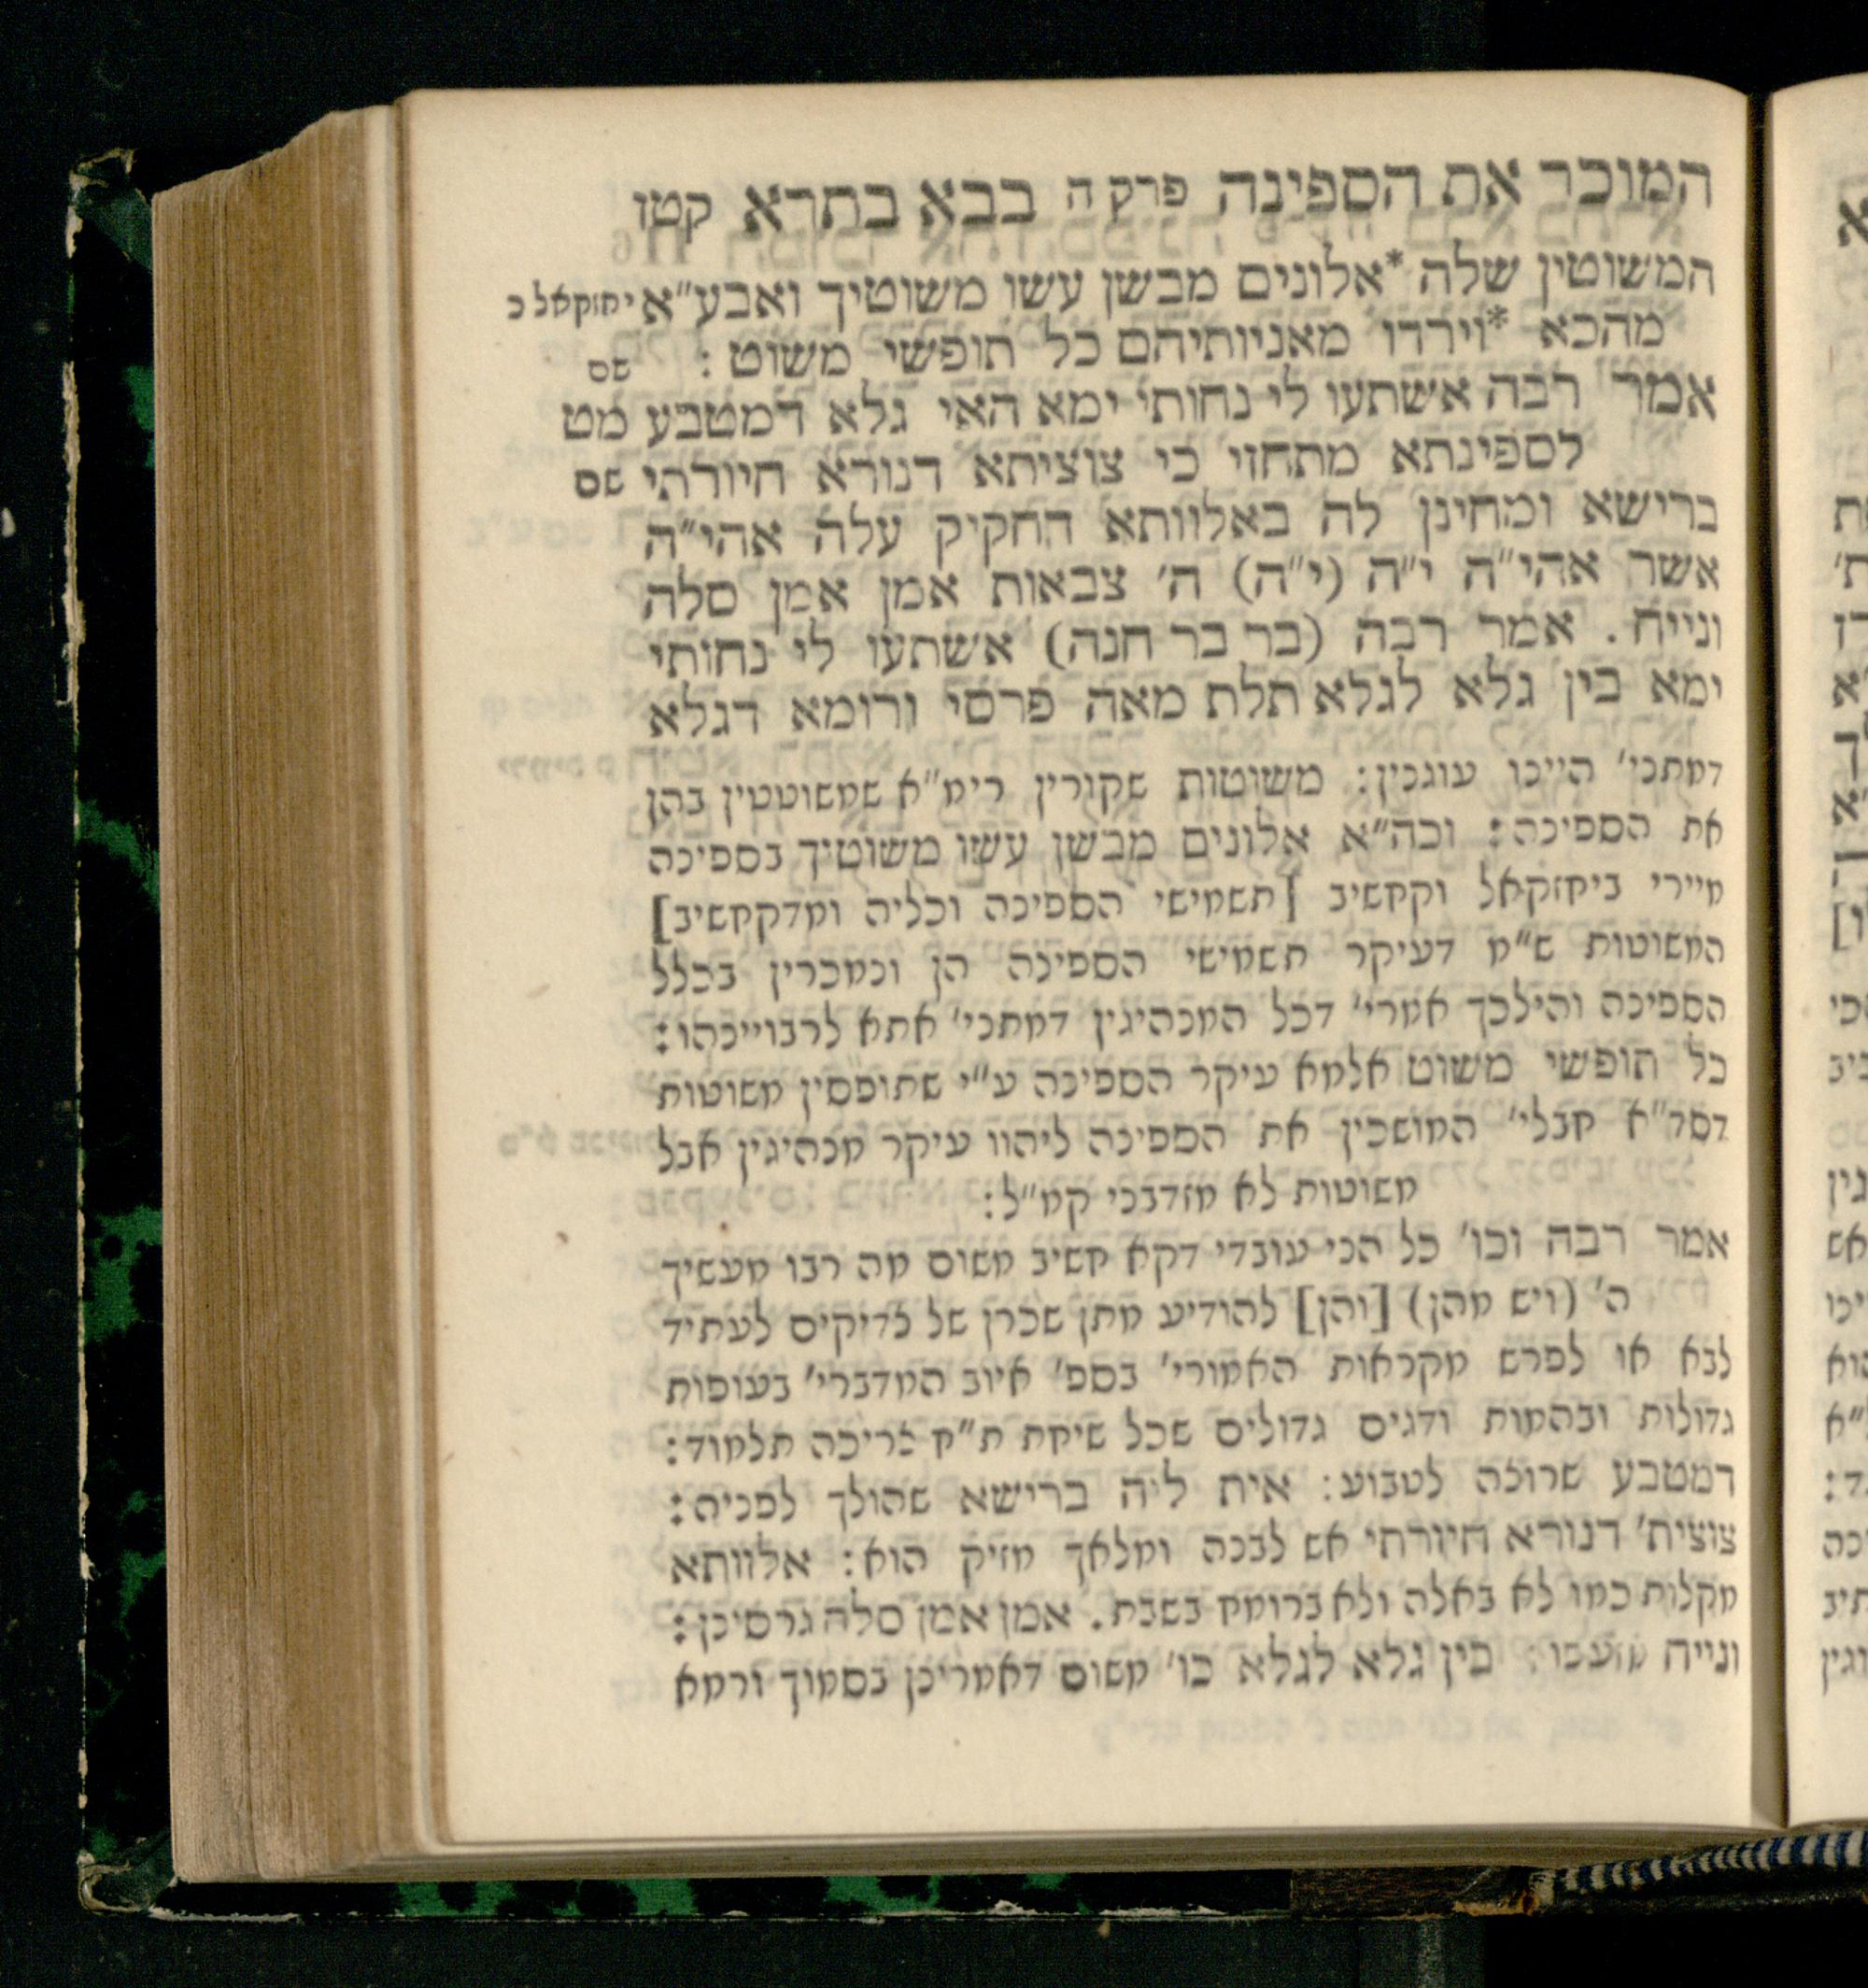 המוכר את הספינה פרק ה בבא בתרא קטז
המשוטין שלה *אלונים מבשן עשו משוטיך ואבע״א יחזקאל כ
מהכא *וירדו מאניותיהם כל תופשי משוט : שם
אמר רבה אשתעו לי נחותי ימא האי גלא דמטבע מט
לספינתא מתחזי כי צוציתא דנורא חיורתי שם
ברישא ומחינן לה באלוותא דחקיק עלה אהי״ה
אשר אהי״ה י״ה (י״ה) ה׳ צבאות אמן אמן סלה
ונייח . אמר רבה (בר בר חנה) אשתעו לי נחותי
ימא בין גלא לגלא תלת מאה פרסי ורומא דגלא
דמתני׳ היינו עוגנין: משוטות שקורין רימ״א שמשוטטין בהן
את הספינה: וכה״א אלונים מבשן עשו משוטיך בספינה
מיירי ביחזקאל וקחשיב [תשמישי הספינה וכליה ומדקחשיב]
המשוטות ש״מ דעיקר תשמישי הספינה הן ונמכרין בכלל
הספינה והילכך אמרי׳ דכל המנהיגין דמתני׳ אתא לרבויינהו:
כל תופשי משוט אלמא עיקר הספינה ע״י שתופסין משוטות
דסד״א חבלי׳ המושכין את הספינה ליהוו עיקר מנהיגין אבל
משוטות לא מזדבני קמ״ל:
אמר רבה וכו׳ כל הני עובדי דקא חשיב משום מה רבו מעשיך
ה׳ (ויש מהן) [והן] להודיע מתן שכרן של צדיקים לעתיד
לבא או לפרש מקראות האמורי׳ בספ׳ איוב המדברי׳ בעופות
גדולות ובהמות ודגים גדולים שכל שיחת ת״ח צריכה תלמוד:
דמטבע שרוצה לטבוע: אית ליה ברישא שהולך לפניה:
צוצית׳ דנורא חיורתי אש לבנה ומלאך מזיק הוא: אלוותא
מקלות כמו לא באלה ולא ברומח בשבת. אמן אמן סלה גרסינן:
ונייח מזעפו: בין גלא לגלא כו׳ משום דאמרינן בסמוך ורמא